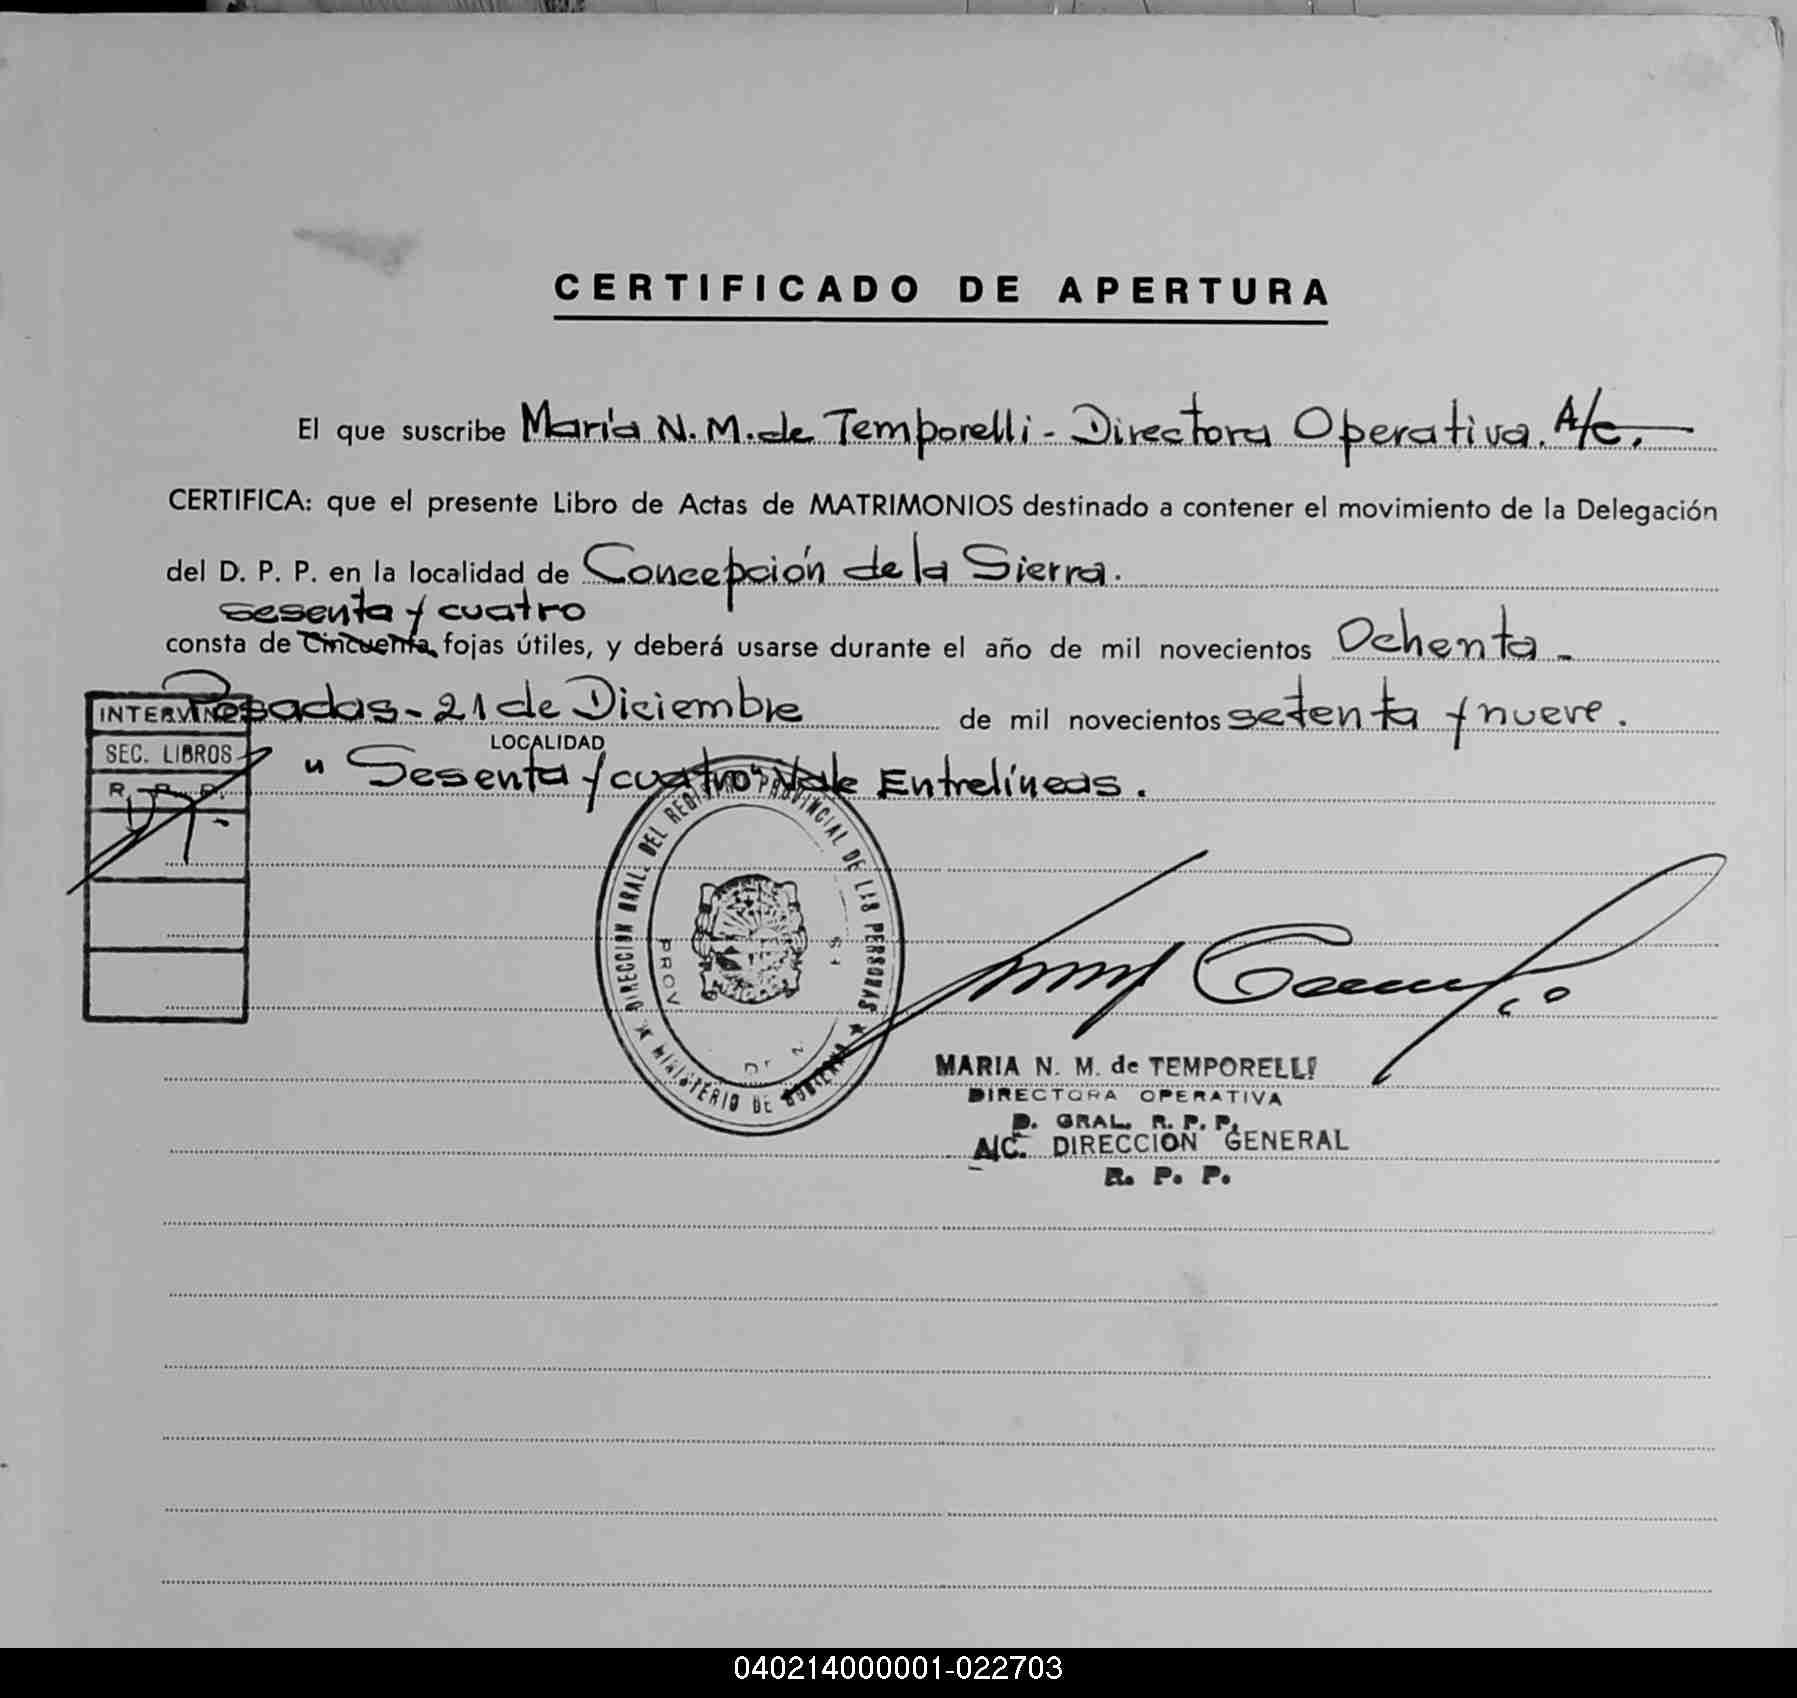 CERTIFICADO DE APERTURA
El que suscribe María N. M. de Temporelli - Directora Operativa. A/c.
CERTIFICA: que el presente Libro de Actas de MATRIMONIOS destinado a contener el movimiento de la Delegación
del D. P. P. en la localidad de Concepción de la Sierra.
sesenta y cuatro
consta de Cincuenta fojas útiles, y deberá usarse durante el año de mil novecientos Ochenta -
Posadas - 21 de Diciembre de mil novecientos setenta y nueve.
LOCALIDAD
" Sesenta y cuatro" Vale Entrelíneas.
INTERVINO
SEC. LIBROS
R. P. P.
DIRECCION GRAL. DEL REGISTRO PROVINCIAL DE LAS PERSONAS
MINISTERIO DE GOBIERNO
PROV
MARIA N. M. de TEMPORELLI
DIRECTORA OPERATIVA
D. GRAL. R. P. P.
A/C. DIRECCION GENERAL
R. P. P.
040214000001-022703